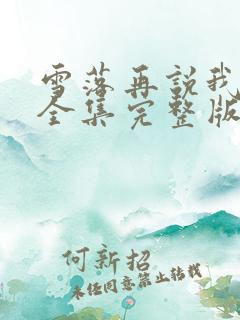 雪落再说我
全集完整版
何新招
未经同意禁止转载